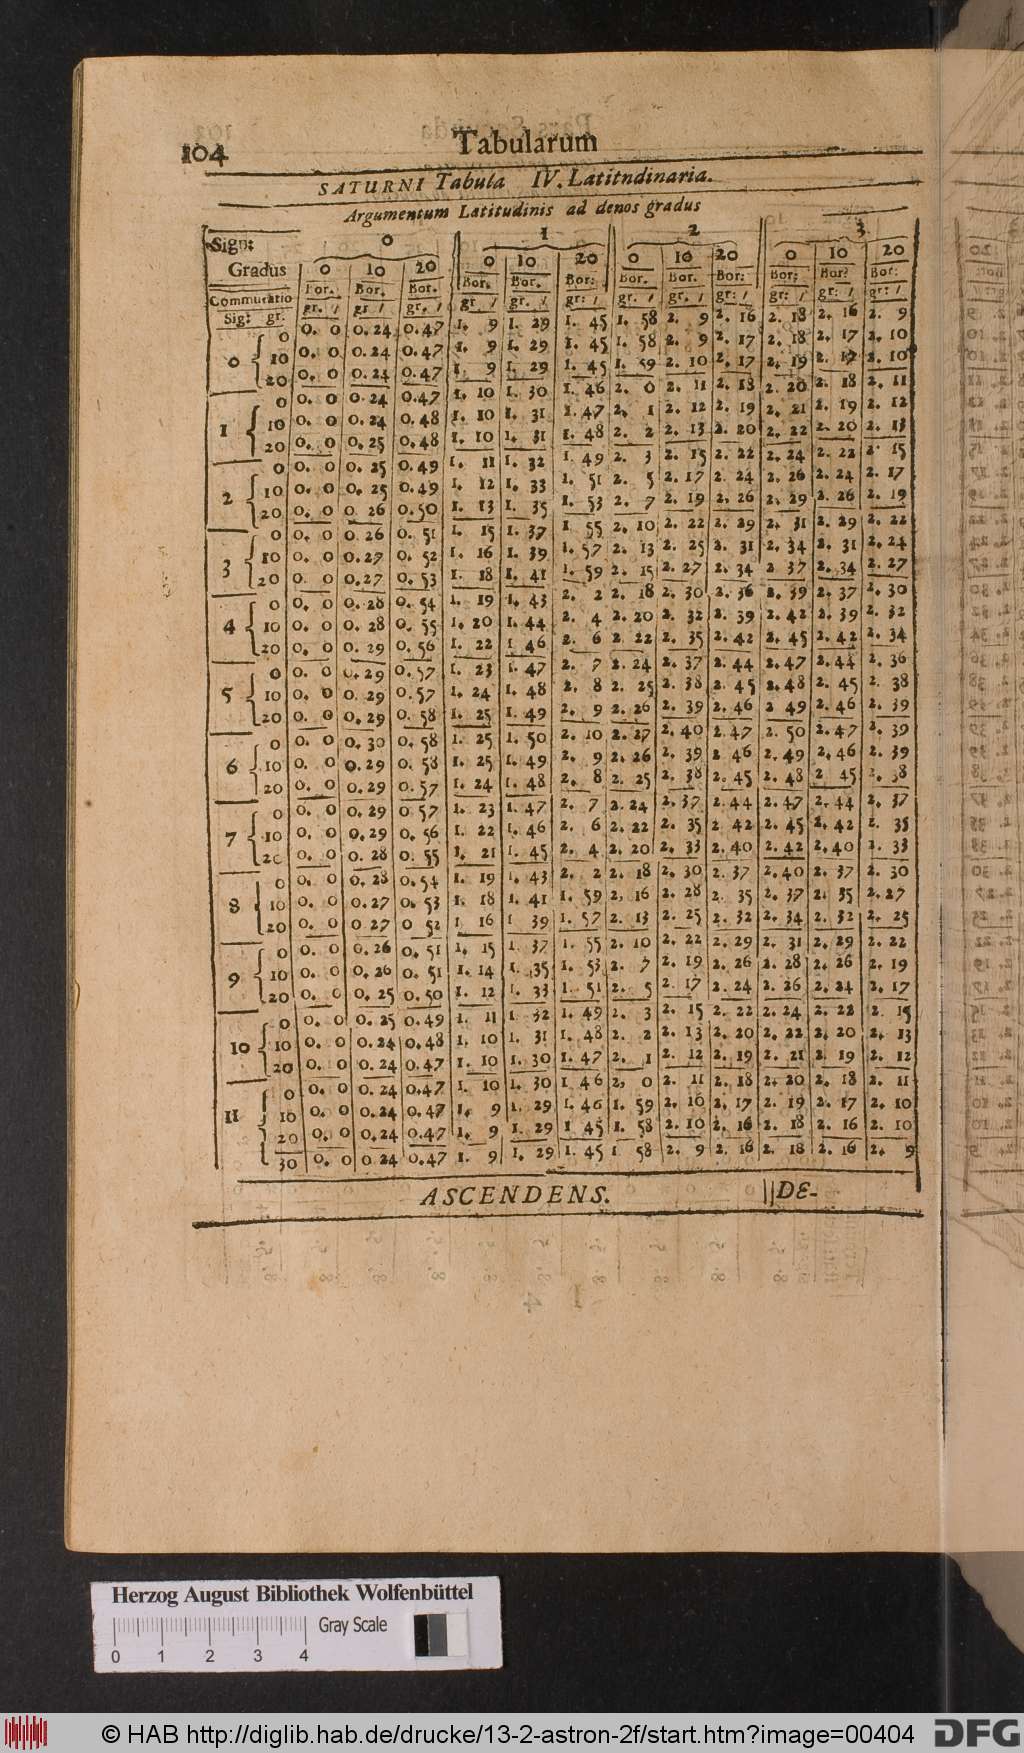 104
Tabularum
SATURNI Tabula IV. Latitndinaria.
Argumentum Latitudinis ad denos gradus
Sign: 0 1 2 3
Gradus 0 10 20 0 10 20 0 10 20 0 10 20
Bor. Bor. Bor. Bor. Bor. Bor: Bor. Bor. Bor: Bor: Bor: Bor:
Commutatio gr. / gr / gr. / gr / gr. / gr: / gr. / gr. / gr: / gr: / gr: / gr: /
Sig: gr.
0 0 0. 0 0. 24 0. 47 1. 9 1. 29 1. 45 1. 58 2. 9 2. 16 2. 18 2. 16 2. 9
10 0. 0 0. 24 0. 47 1. 9 1. 29 1. 45 1. 58 2. 9 2. 17 2. 18 2. 17 2. 10
20 0. 0 0. 24 0. 47 1. 9 1. 29 1. 45 1. 59 2. 10 2. 17 2. 19 2. 17 2. 10
1 0 0. 0 0. 24 0. 47 1. 10 1. 30 1. 46 2. 0 2. 11 2. 18 2. 20 2. 18 2. 11
10 0. 0 0. 24 0. 48 1. 10 1. 31 1. 47 2. 1 2. 12 2. 19 2. 21 2. 19 2. 12
20 0. 0 0. 25 0. 48 1. 10 1. 31 1. 48 2. 2 2. 13 2. 20 2. 22 2. 20 2. 13
2 0 0. 0 0. 25 0. 49 1. 11 1. 32 1. 49 2. 3 2. 15 2. 22 2. 24 2. 22 2. 15
10 0. 0 0. 25 0. 49 1. 12 1. 33 1. 51 2. 5 2. 17 2. 24 2. 26 2. 24 2. 17
20 0. 0 0. 26 0. 50 1. 13 1. 35 1. 53 2. 7 2. 19 2. 26 2. 29 2. 26 2. 19
3 0 0. 0 0. 26 0. 51 1. 15 1. 37 1 55 2. 10 2. 22 2. 29 2. 31 2. 29 2. 22
10 0. 0 0. 27 0. 52 1. 16 1. 39 1. 57 2. 13 2. 25 2. 31 2. 34 2. 31 2. 24
20 0. 0 0. 27 0. 53 1. 18 1. 41 1. 59 2. 15 2. 27 2. 34 2 37 2. 34 2. 27
4 0 0. 0 0. 28 0. 54 1. 19 1. 43 2. 2 2. 18 2. 30 2. 36 2. 39 2. 37 2. 30
10 0. 0 0. 28 0. 55 1. 20 1. 44 2. 4 2. 20 2. 32 2. 39 2. 42 2. 39 2. 32
20 0. 0 0. 29 0. 56 1. 22 1 46 2. 6 2 22 2. 35 2. 42 2. 45 2. 42 2. 34
5 0 0. 0 0. 29 0. 57 1. 23 1. 47 2. 7 2. 24 2. 37 2. 44 2. 47 2. 44 2. 36
10 0. 0 0. 29 0. 57 1. 24 1. 48 2. 8 2. 25 2. 38 2. 45 2. 48 2. 45 2. 38
20 0. 0 0. 29 0. 58 1. 25 1. 49 2. 9 2. 26 2. 39 2. 46 2 49 2. 46 2. 39
6 0 0. 0 0. 30 0. 58 1. 25 1. 50 2. 10 2. 27 2. 40 2. 47 2. 50 2. 47 2. 39
10 0. 0 0. 29 0. 58 1. 25 1. 49 2. 9 2. 26 2. 39 2 46 2. 49 2. 46 2. 39
20 0. 0 0. 29 0. 57 1. 24 1. 48 2. 8 2. 25 2. 38 2. 45 2. 48 2 45 2. 38
7 0 0. 0 0. 29 0 57 1. 23 1. 47 2. 7 2. 24 2. 37 2. 44 2. 47 2. 44 2. 37
10 0. 0 0. 29 0. 56 1. 22 1. 46 2. 6 2. 22 2. 35 2 42 2. 45 2. 42 2. 35
20 0. 0 0. 28 0. 55 1. 21 1. 45 2. 4 2. 20 2. 33 2. 40 2. 42 2. 40 2. 33
8 0 0. 0 0. 28 0. 54 1. 19 1. 43 2. 2 2. 18 2. 30 2. 37 2. 40 2. 37 2. 30
10 0. 0 0. 27 0. 53 1. 18 1. 41 1. 59 2. 16 2. 28 2. 35 2. 37 2. 35 2. 27
20 0. 0 0 27 0 52 1. 16 1 39 1. 57 2. 13 2. 25 2. 32 2. 34 2. 32 2. 25
9 0 0. 0 0. 26 0. 51 1. 15 1. 37 1. 55 2. 10 2. 22 2. 29 2. 31 2. 29 2. 22
10 0. 0 0. 26 0. 51 1. 14 1. 35 1. 53 2. 7 2. 19 2. 26 2. 28 2. 26 2. 19
20 0. 0 0. 25 0. 50 1. 12 1. 33 1. 51 2. 5 2. 17 2. 24 2. 26 2. 24 2. 17
10 0 0. 0 0. 25 0. 49 1. 11 1. 32 1. 49 2. 3 2. 15 2. 22 2. 24 2. 22 2. 15
10 0. 0 0. 24 0. 48 1. 10 1. 31 1. 48 2. 2 2. 13 2. 20 2. 22 2. 20 2. 13
20 0. 0 0. 24 0. 47 1. 10 1. 30 1. 47 2. 1 2. 12 2. 19 2. 21 2. 19 2. 12
11 0 0. 0 0. 24 0. 47 1. 10 1. 30 1 46 2. 0 2. 11 2. 18 2. 20 2. 18 2. 11
10 0. 0 0. 24 0. 47 1. 9 1. 29 1. 46 1. 59 2. 10 2. 17 2. 19 2. 17 2. 10
20 0. 0 0. 24 0. 47 1. 9 1. 29 1 45 1. 58 2. 10 2. 16 2. 18 2. 16 2. 10
30 0. 0 0 24 0. 47 1. 9 1. 29 1. 45 1 58 2. 9 2. 16 2. 18 2. 16 2. 9
ASCENDENS. ||DE-
Herzog August Bibliothek Wolfenbüttel
Gray Scale
0 1 2 3 4
© HAB http://diglib.hab.de/drucke/13-2-astron-2f/start.htm?image=00404
DFG